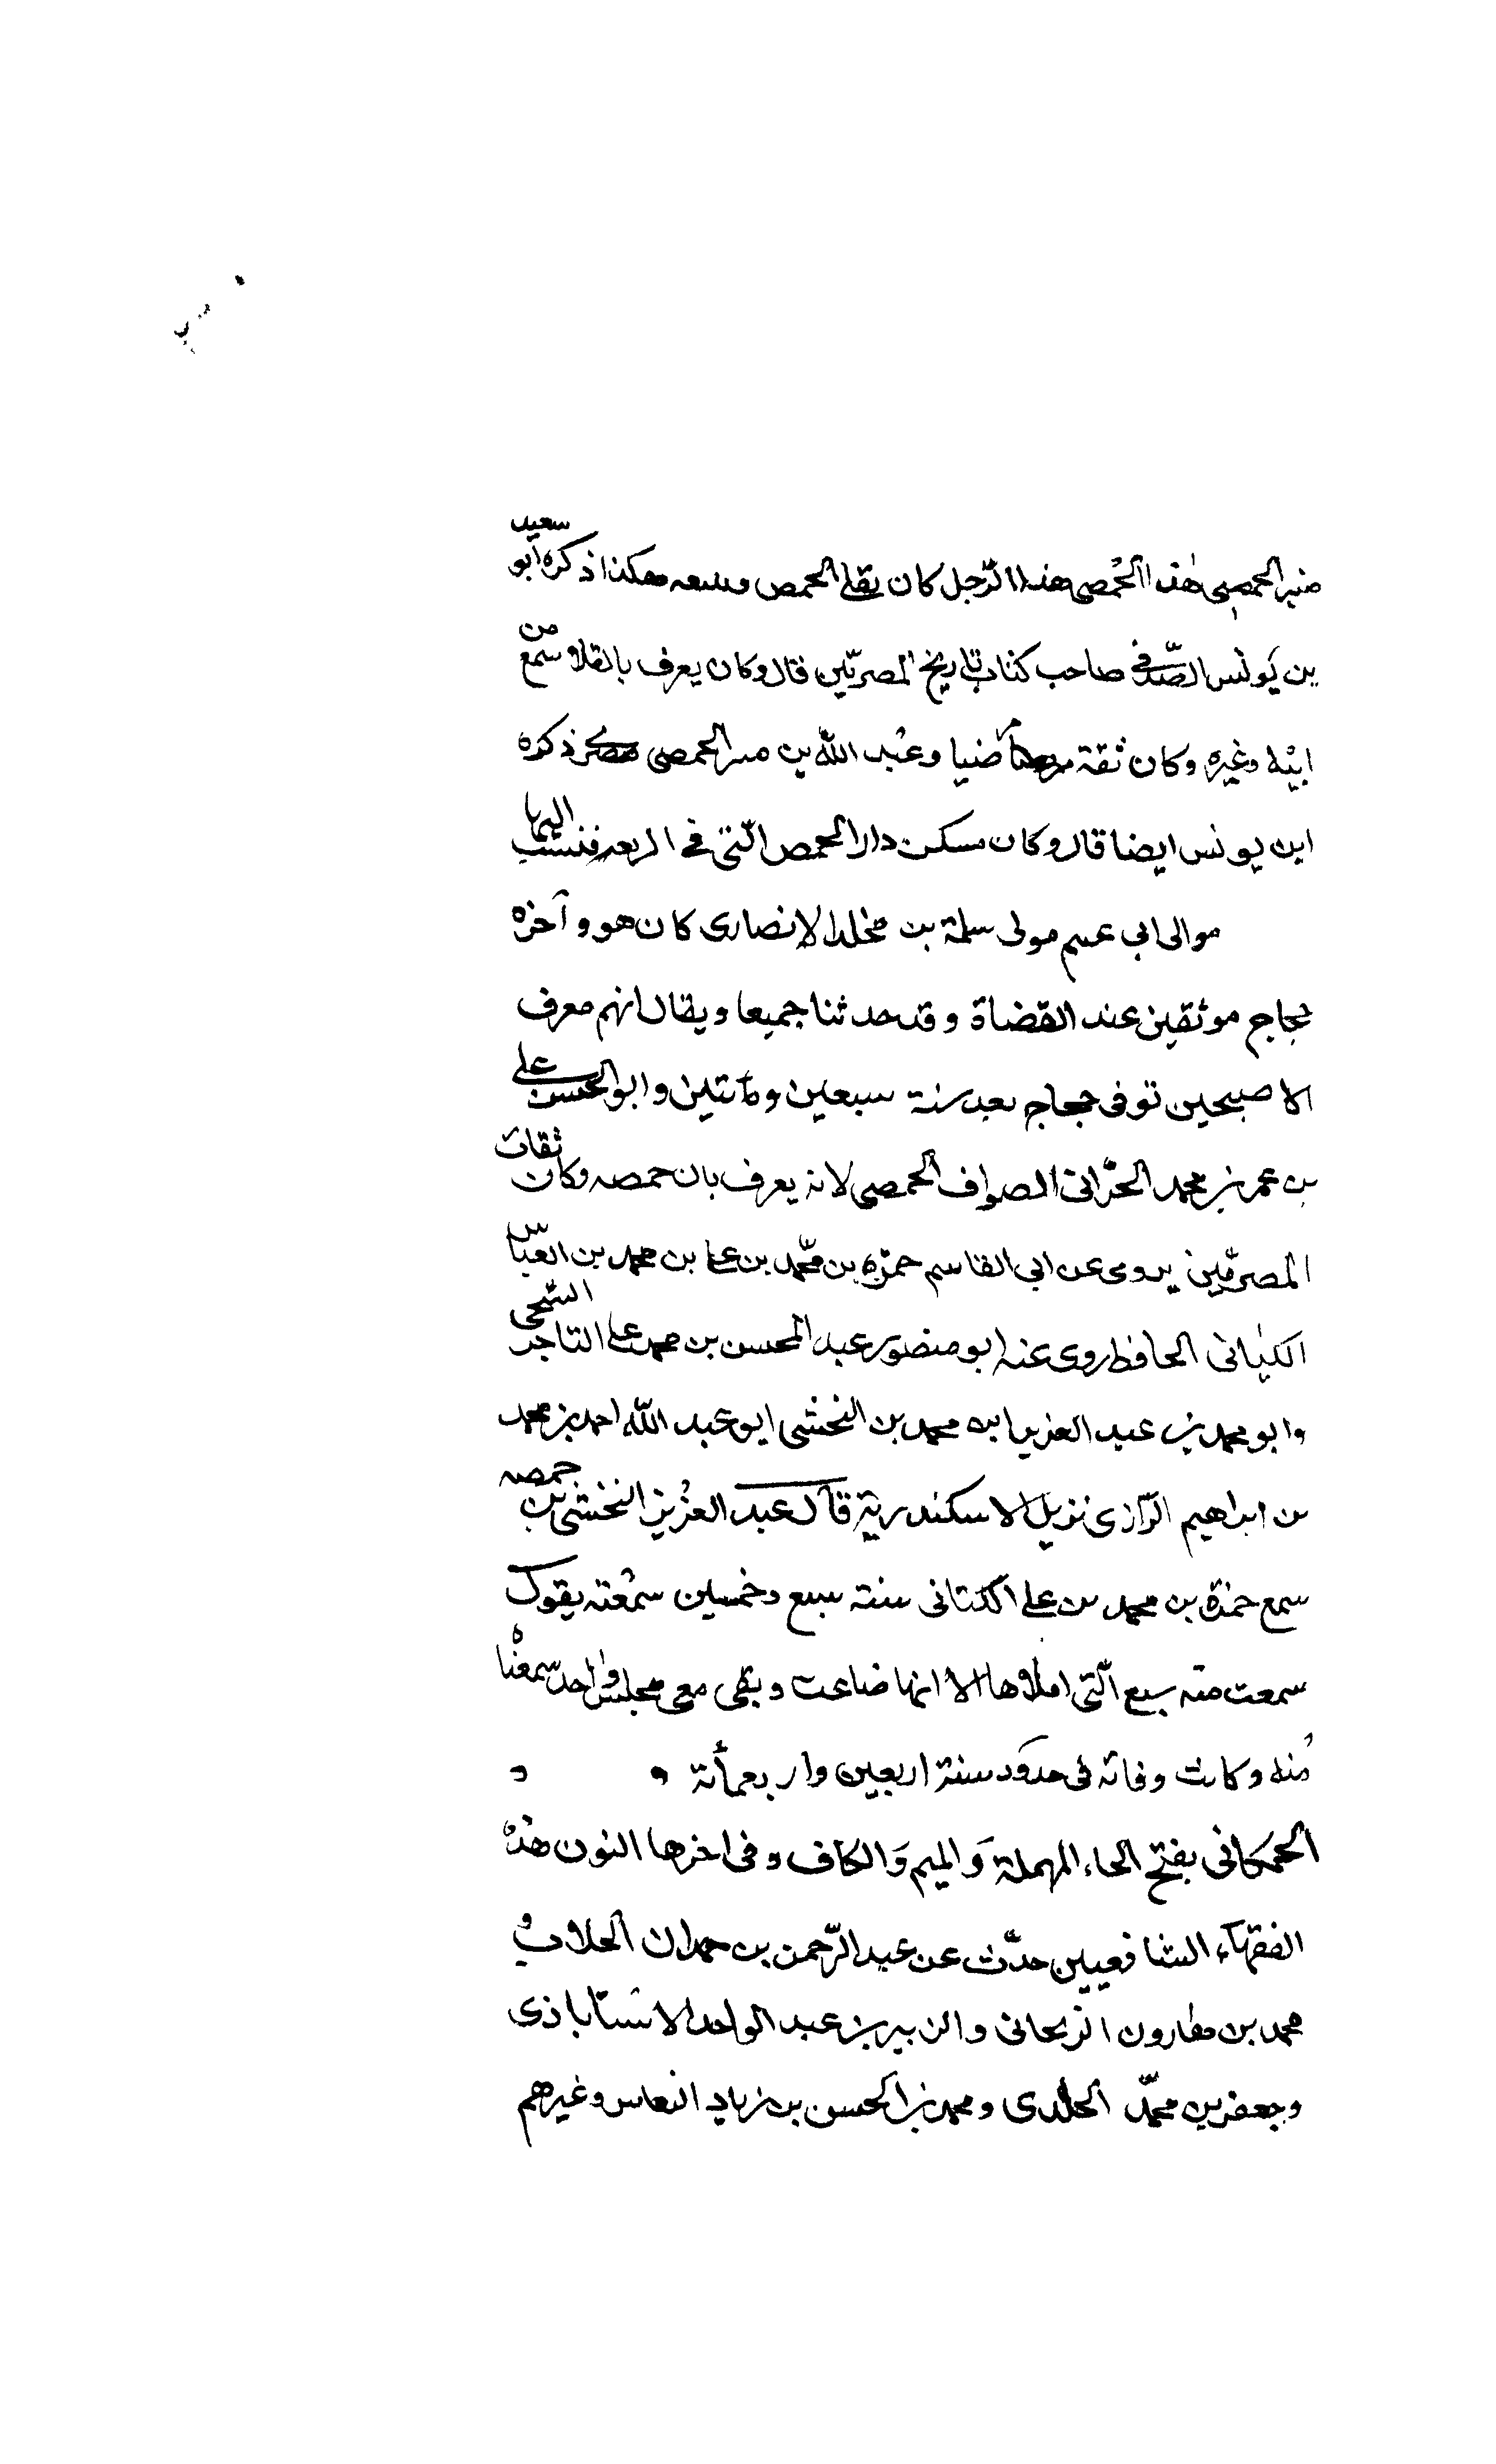 منير الحمصي هذا الحمصي هذا الرجل كان يقلي الحمص وبيعه هكذا ذكره ابو سعيد
بن يونس الصّدفي صاحب كتاب تاريخ المصريّين قال وكان يعرف بالقلاء سمع من
ابيه وغيره وكان ثقة مرضيا وعبد الله بن منير الحمصي مصري ذكره
ابن يونس ايضا قال وكان مسكن دار الحمص الّتي في المربعه فنسب اليها
موالى ابي عثيم مولى سلمة بن مخلد الانصاري كان هو وآخره
حجاج موثقين عند القضاة وقد حدثنا جميعا ويقال انهم معرف
الاصبحين توفي حجاج بعد سنة سبعين ومأتين وابو الحسن علي
بن عمر بن محمد الحرّاني الصواف الحمصي لانه يعرف بابن حمصه وكان ثقات
المصريّين يروي عن ابي القاسم حمزة بن محمّد بن علي بن محمد بن العبّاس
الكناني الحافظ روى عنه ابو منصور عبد المحسن بن محمد علي التاجر الشيحي
وابو محمد بن عبد العزيز ابن محمد بن النخشبي ابو عبد الله احمد بن محمد
بن ابراهيم الرّازي نزيل الاسكندرية قال عبد العزيز النخشبي بن حمصه
سمع حمزة بن محمد بن علي الكتاني سنة سبع وخمسين سمعته يقول
سمعت منه سبع الّتي املاها الا انها ضاعت وبقي معي مجلس واحد سمعناه
منه وكانت وفاته في حدود سنة اربعين واربعمأة
الحمكاني بفتح الحاء المهملة والميم والكاف وفي اخرها النون هذه
الفقهاء الشافعيين حدّث عن عبد الرّحمن بن حمدان الجلاب و
محمد بن هارون الزيحاني والزبير بن عبد الواحد الاستاباذي
وجعفر بن محمّد الخلدي ومحمد بن الحسن بن زياد النعاس وغيرهم